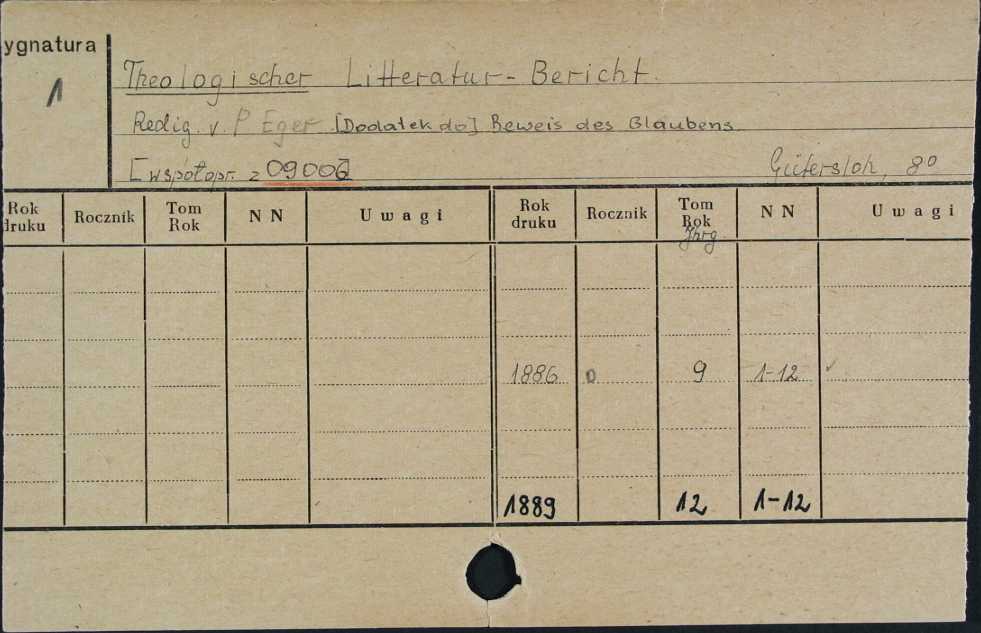 ygnatura
1
Theologischer Litteratur-Bericht.
Redig. v. P Eger. [Dodatek do] Beweis des Glaubens
[współopr. z 09006]
Gütersloh, 8º
Rok druku Rocznik Tom Rok N N Uwagi Rok druku Rocznik Tom Rok N N Uwagi
Jhrg
1886 0 9 1-12 ✓
1889 12 1-12